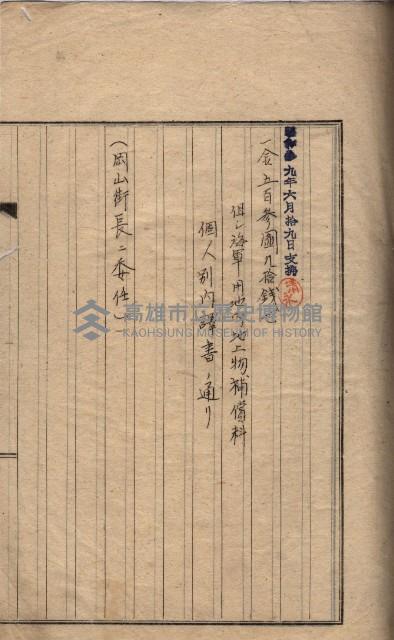 昭和 九年六月拾九日支拂
一金五百參圓九拾錢也
但シ海軍用地 地上物補償料
個人別內譯書ノ通リ
(岡山街長ニ委任)
高雄市立歷史博物館
KAOHSIUNG MUSEUM OF HISTORY